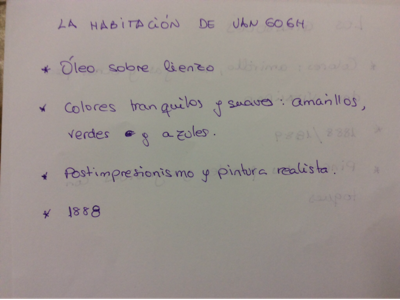 LA HABITACIÓN DE VAN GOGH
* Óleo sobre lienzo
* Colores tranquilos y suaves: amarillos,
verdes y azules.
* Postimpresionismo y pintura realista.
* 1888